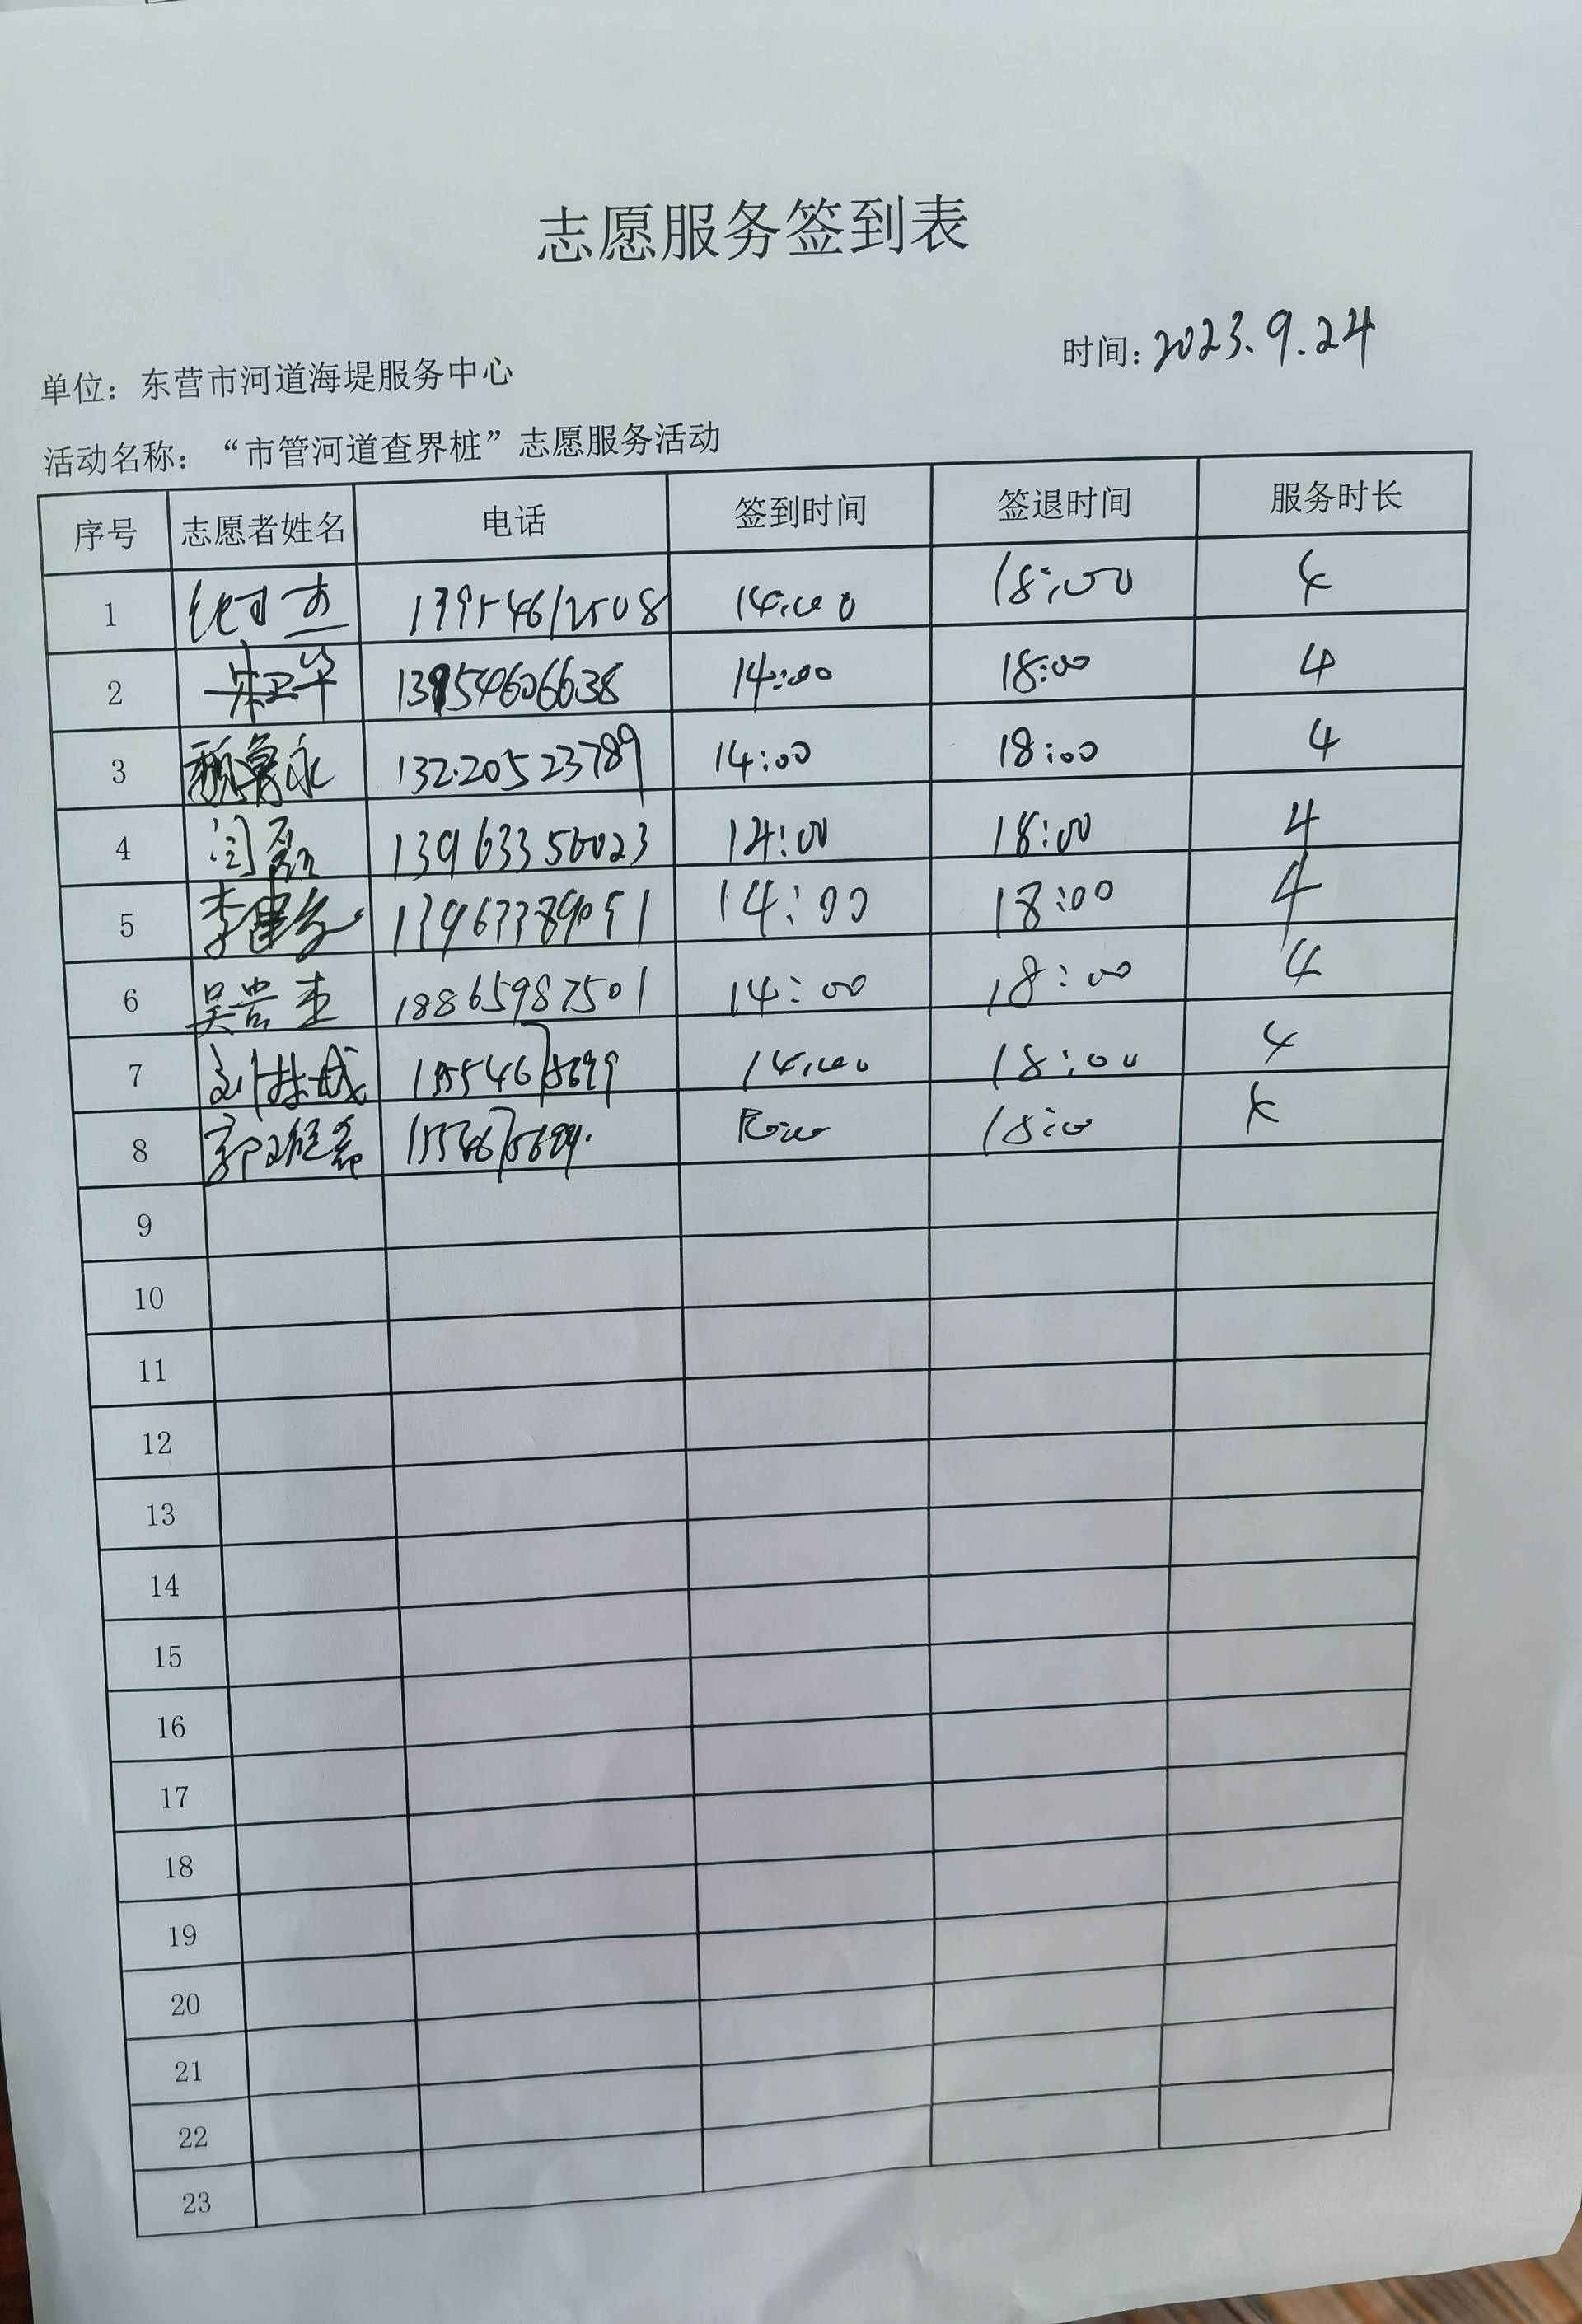 志愿服务签到表
时间：2023.9.24
单位：东营市河道海堤服务中心
活动名称：“市管河道查界桩”志愿服务活动
序号 志愿者姓名 电话 签到时间 签退时间 服务时长
1 13954612508 14:00 18:00 4
2 宋卫华 13954606638 14:00 18:00 4
3 魏曾永 13220523789 14:00 18:00 4
4 闫磊 13963356023 14:00 18:00 4
5 李建 13963389091 14:00 18:00 4
6 吴尝圭 18865987501 14:00 18:00 4
7 刘林成 14:00 18:00 4
8 郭 18:00 4
9
10
11
12
13
14
15
16
17
18
19
20
21
22
23